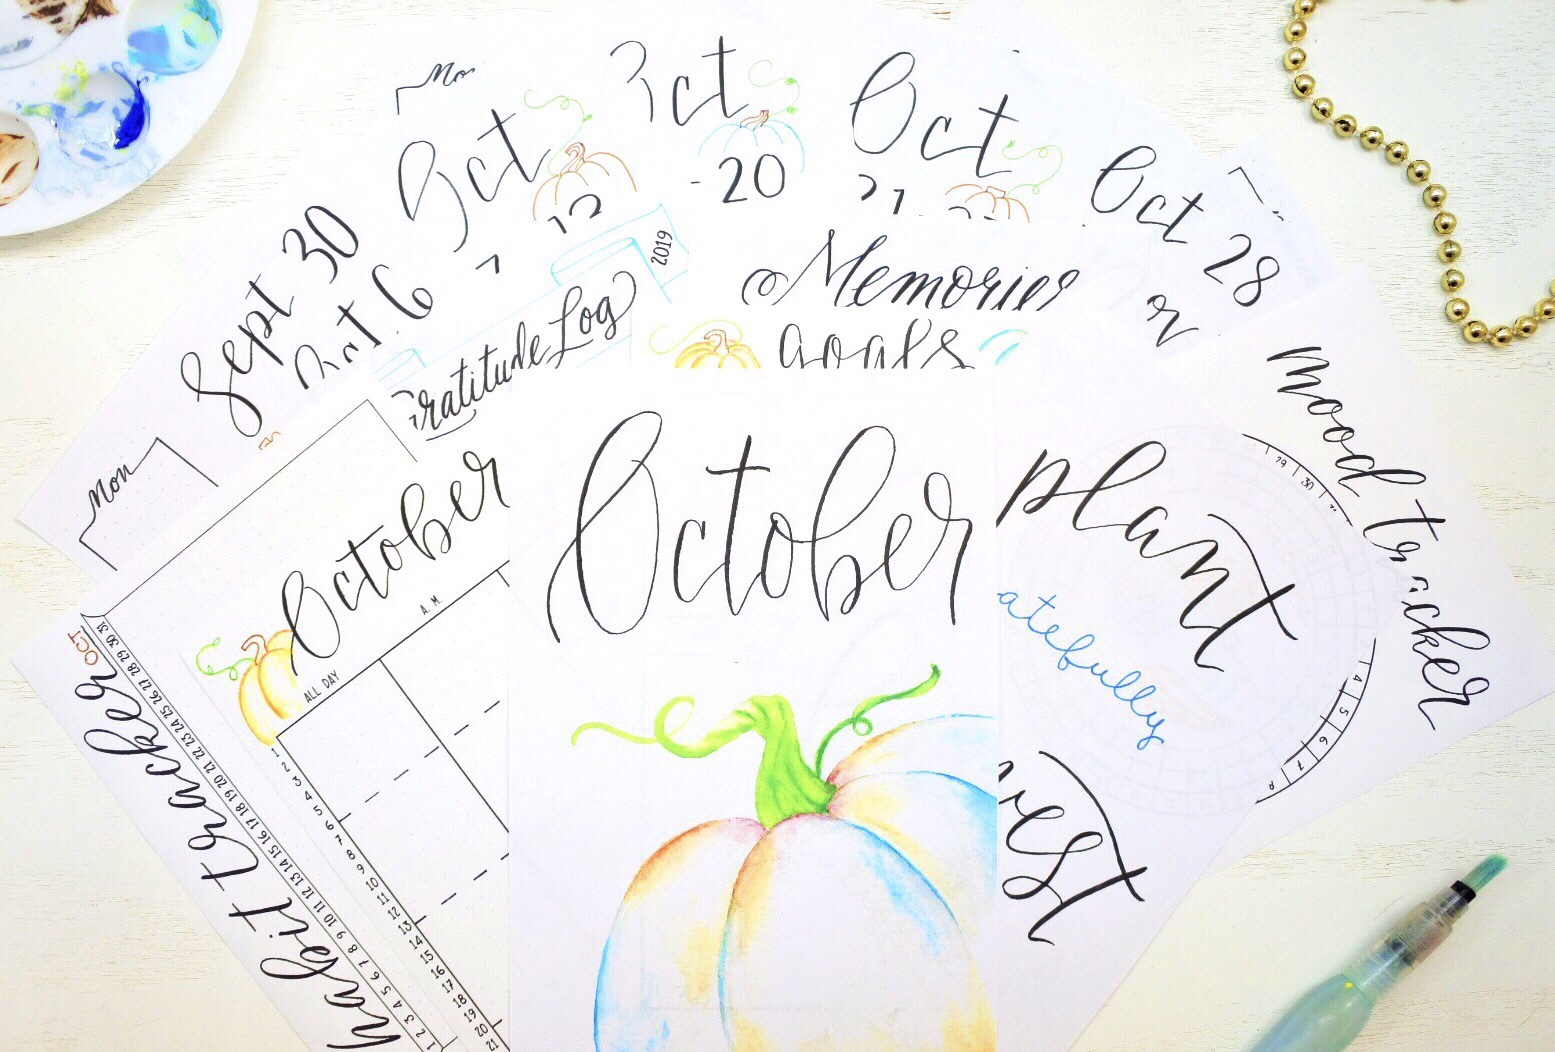 Mon
Oct
Oct
20
Oct
Oct 28
Sept 30
Oct 6
2019
Gratitude Log
Memories
goals
mood tracker
Mon
October
A.M.
ALL DAY
1
2
3
4
5
6
7
8
9
10
11
12
13
14
15
16
17
18
19
20
21
October
plant
atefully
vest
29
30
4
5
6
7
8
OCT
habit tracker
1 2 3 4 5 6 7 8 9 10 11 12 13 14 15 16 17 18 19 20 21 22 23 24 25 26 27 28 29 30 31